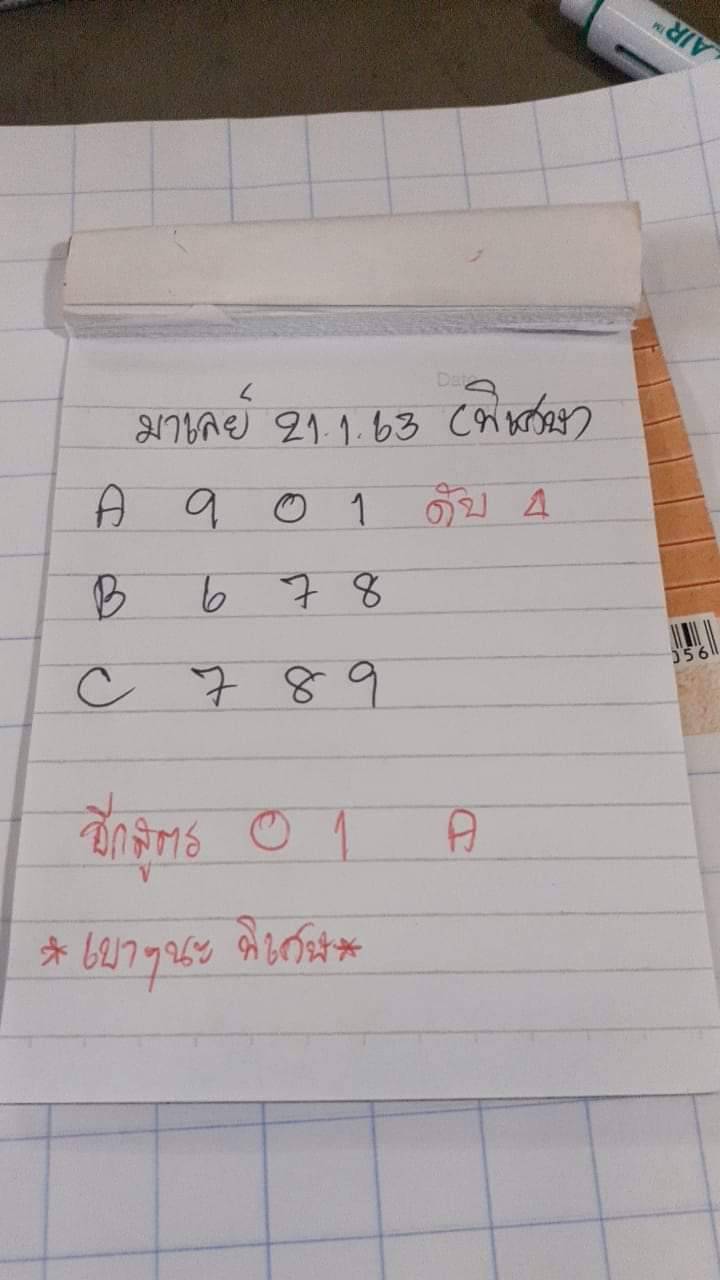 AIR™
Date
มาเลย์ 21.1.63 (พิเศษ)
A 9 0 1 ดับ 4
B 6 7 8
C 7 8 9
056
อีกสูตร 0 1 A
*เบาๆนะ พิเศษ*